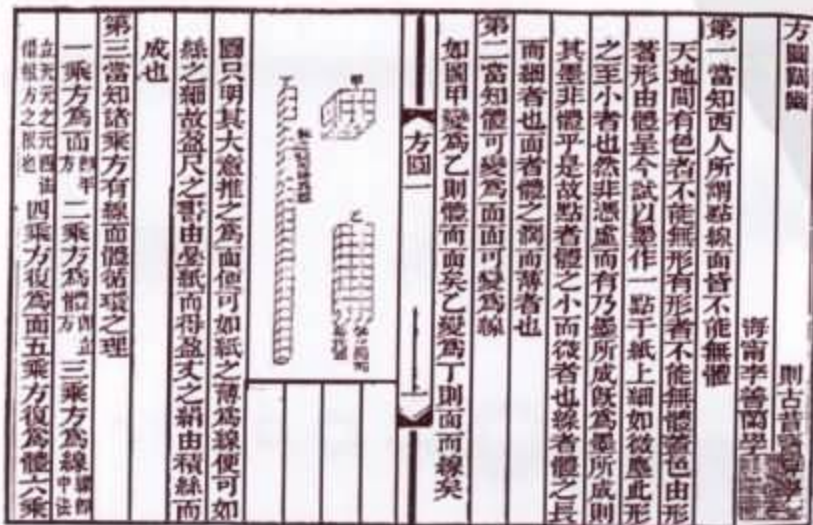 方圓闡幽
則古昔齋算學
海甯李善蘭學
第一當知西人所謂點線面皆不能無體
天地間有色者不能無形有形者不能無體蓋色由形
著形由體呈今試以墨作一點于紙上細如微塵此形
之至小者也然非憑虛而有乃墨所成旣爲墨所成則
其墨非體乎是故點者體之小而微者也線者體之長
而細者也面者體之濶而薄者也
第二當知體可變爲面面可變爲線
如圖甲變爲乙則體而面矣乙變爲丁則面而線矣
方圓一
一
甲
乙
丁
圖只明其大意推之爲面便可如紙之薄爲線便可如
絲之細故盈尺之書由叠紙而得盈丈之絹由積絲而
成也
第三當知諸乘方有線面體循環之理
一乘方爲面卽平方 二乘方爲體卽立方 三乘方爲線
四乘方復爲面五乘方復爲體六乘